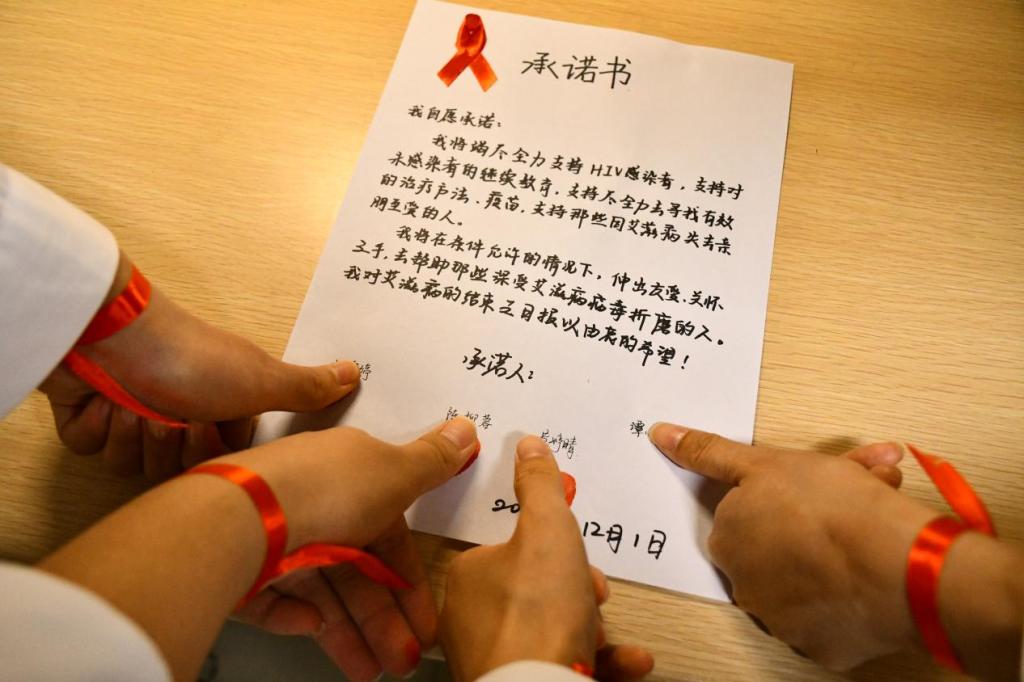 承诺书
我自愿承诺：
我将竭尽全力支持HIV感染者，支持对
未感染者的继续教育，支持尽全力去寻找有效
的治疗方法、疫苗，支持那些因艾滋病失去亲
朋至爱的人。
我将在条件允许的情况下，伸出友爱、关怀
之手，去帮助那些深受艾滋病病毒折磨的人。
我对艾滋病的结束之日报以由衷的希望！
承诺人：
婷
陈柳蓉
婷晴
谭
20
12月1日